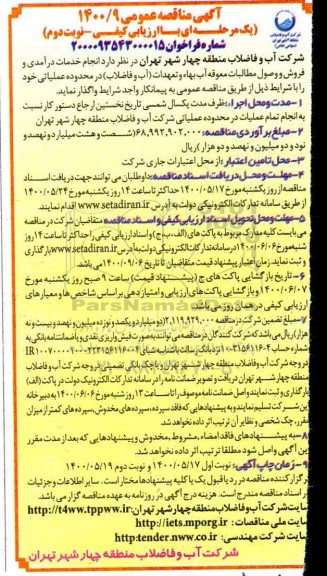 آگهی مناقصه عمومی ۱۴۰۰/۹
(یک مرحله ای با ارزیابی کیفی - نوبت دوم)
شماره فراخوان ۲۰۰۰۰۹۳۵۴۳۰۰۰۰۱۵
شرکت آب و فاضلاب منطقه چهار شهر تهران در نظر دارد انجام خدمات درآمدی و
فروش و وصول مطالبات معوقه آب بهاء و تعهدات (آب و فاضلاب) در محدوده عملیاتی خود
را با شرایط ذیل از طریق مناقصه عمومی به پیمانکار واجد شرایط واگذار نماید.
۱- مدت و محل اجرا: ظرف مدت یکسال شمسی از تاریخ نخستین ارجاع دستور کار نسبت
به انجام تمام عملیات در محدوده عملیاتی شرکت آب و فاضلاب منطقه چهار شهر تهران
۲- مبلغ برآوردی مناقصه: ۶۸,۹۹۲,۹۰۲,۰۰۰ (شصت و هشت میلیارد و نهصد و
نود و دو میلیون و نهصد و دو هزار) ریال
۳- محل تامین اعتبار: از محل اعتبارات جاری شرکت
۴- مهلت و محل دریافت اسناد مناقصه: داوطلبان می توانند جهت دریافت اسناد
مناقصه از روز یکشنبه مورخ ۱۴۰۰/۰۵/۱۷ حداکثر تا ساعت ۱۴ روز یکشنبه مورخ ۱۴۰۰/۰۵/۲۴
از طریق سامانه تدارکات الکترونیکی دولت به آدرس www.setadiran.ir اقدام نمایند.
۵- مهلت و محل تحویل اسناد ارزیابی کیفی و اسناد مناقصه: متقاضیان شرکت در مناقصه
می بایست کلیه مدارک مربوط به پاکت های (الف، ب، ج) و اسناد ارزیابی کیفی را حداکثر تا ساعت ۱۴ روز
شنبه مورخ ۱۴۰۰/۰۶/۰۶ در سامانه تدارکات الکترونیکی دولت به آدرس www.setadiran.ir بارگذاری
و ثبت نمایند. زمان اعتبار پیشنهاد قیمت متقاضیان تا تاریخ ۱۴۰۰/۰۹/۰۶ می باشد.
۶- تاریخ بازگشایی پاکت های ج (پیشنهاد قیمت) ساعت ۹ صبح روز یکشنبه مورخ
۱۴۰۰/۰۶/۰۷ و بازگشایی پاکت های ارزیابی و امتیازدهی بر اساس شاخص ها و معیارهای
ارزیابی کیفی در همان روز می باشد.
۷- مبلغ تضمین شرکت در مناقصه: ۲,۱۱۹,۹۲۹,۰۰۰ (دو میلیارد و یکصد و نوزده میلیون و نهصد و بیست و نه
هزار) ریال می باشد، که شرکت کنندگان در مناقصه می توانند به صورت فیش واریز نقدی و یا ضمانتنامه بانکی به
در وجه شرکت آب و فاضلاب منطقه چهار شهر تهران
منطقه چهار شهر تهران دریافت و تصویر ضمانت نامه را در سامانه تدارکات الکترونیک دولت در پاکت (الف)
بارگذاری و ثبت نمایند و اصل ضمانت نامه موصوف را تا ساعت ۱۳ روز شنبه مورخ ۱۴۰۰/۰۶/۰۶ به دبیرخانه
این شرکت تسلیم نمایند و به پیشنهادهایی که فاقد سپرده، سپرده های مخدوش، سپرده های کمتر از میزان
مقرر، چک شخصی و نظایر آن ترتیب اثر داده نخواهد شد.
۸- به پیشنهادهای فاقد امضاء، مشروط، مخدوش و پیشنهادهایی که بعد از مدت مقرر
در این آگهی واصل شود مطلقا ترتیب اثر داده نخواهد شد.
۹- زمان چاپ آگهی: نوبت اول ۱۴۰۰/۰۵/۱۷ و نوبت دوم ۱۴۰۰/۰۵/۱۹
برگزار کننده مناقصه در رد یا قبول یک یا کلیه پیشنهادها مختار است. سایر اطلاعات و جزئیات
در اسناد مناقصه مندرج است. هزینه درج آگهی در روزنامه به عهده مناقصه گزار می باشد.
سایت شرکت آب و فاضلاب منطقه چهار شهر تهران: http://t4ww.tppww.ir
سایت ملی مناقصات: http://iets.mporg.ir
سایت شرکت مهندسی: http:tender.nww.co.ir
شرکت آب و فاضلاب منطقه چهار شهر تهران